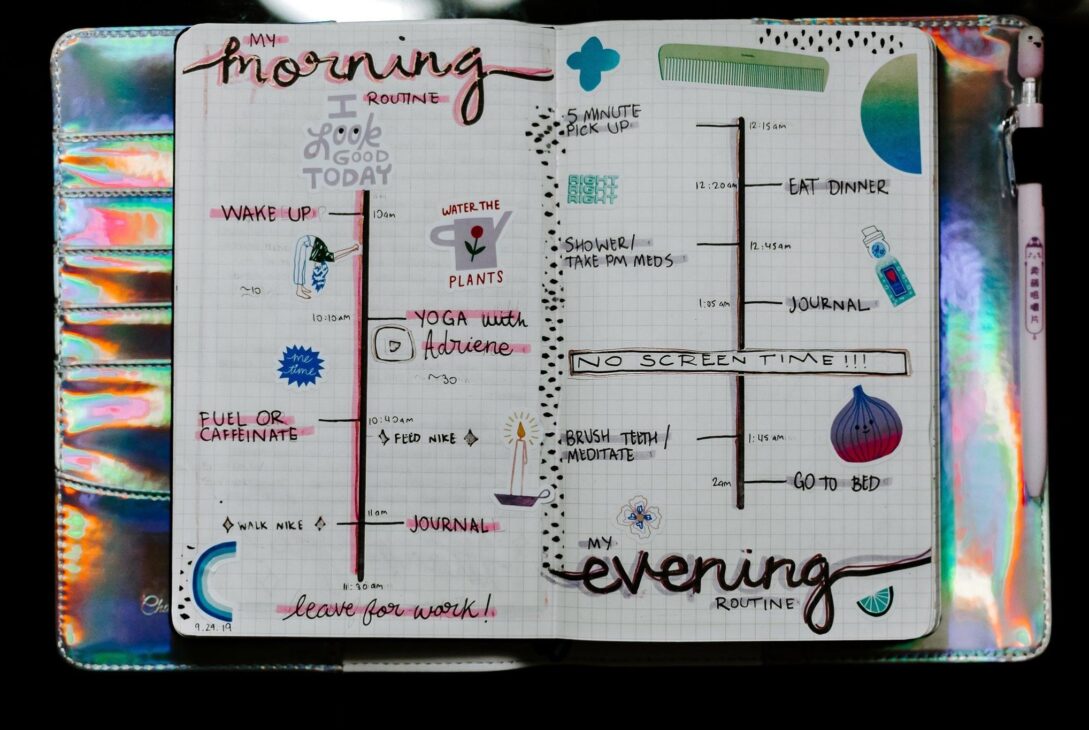 MY
morning
ROUTINE
I
Look
GOOD
TODAY
WAKE UP
10am
WATER THE
PLANTS
~10
10:10am
YOGA with
Adriene
me
time
~30
FUEL OR
CAFFEINATE
10:40am
FEED NIKE
WALK NIKE
11am
JOURNAL
11:30am
leave for work!
9.29.19
5 MINUTE
PICK UP
12:15am
RIGHT
RIGHT
RIGHT
12:20am
EAT DINNER
SHOWER/
TAKE PM MEDS
12:45am
1:05am
JOURNAL
NO SCREEN TIME!!!
BRUSH TEETH/
MEDITATE
1:45am
2am
GO TO BED
MY
evening
ROUTINE